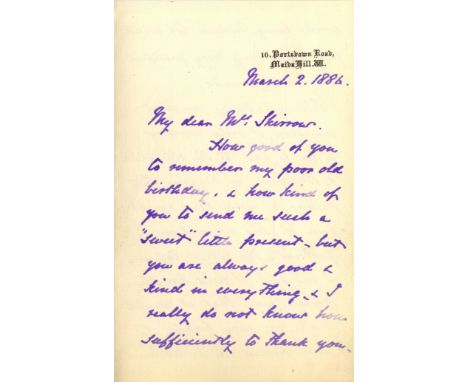 10. Portsdown Road,
Maida Hill. W.
March 2. 1886.
My dear Mrs Skirrow.
How good of you
to remember my poor old
birthday. & how kind of
you to send me such a
"sweet" little present - but
you are always good &
kind in everything, & I
really do not know how
sufficiently to thank you -